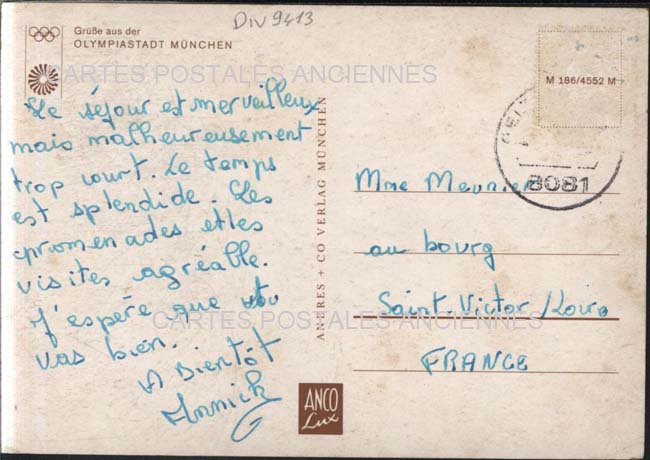 Div 9413
Grüße aus der
OLYMPIASTADT MÜNCHEN
CARTES POSTALES ANCIENNES
Le séjour est merveilleux
mais malheureusement
trop court. Le temps
est splendide. Les
promenades et les
visites agréable.
J'espère que
vas bien.
A Bientôt
Annick
ANDRES + CO VERLAG MÜNCHEN
M 186/4552 M
8081
Mme Meunier
au bourg
Saint Victor/Loire
FRANCE
CARTES POSTALES ANCIENNES
ANCO
Lux